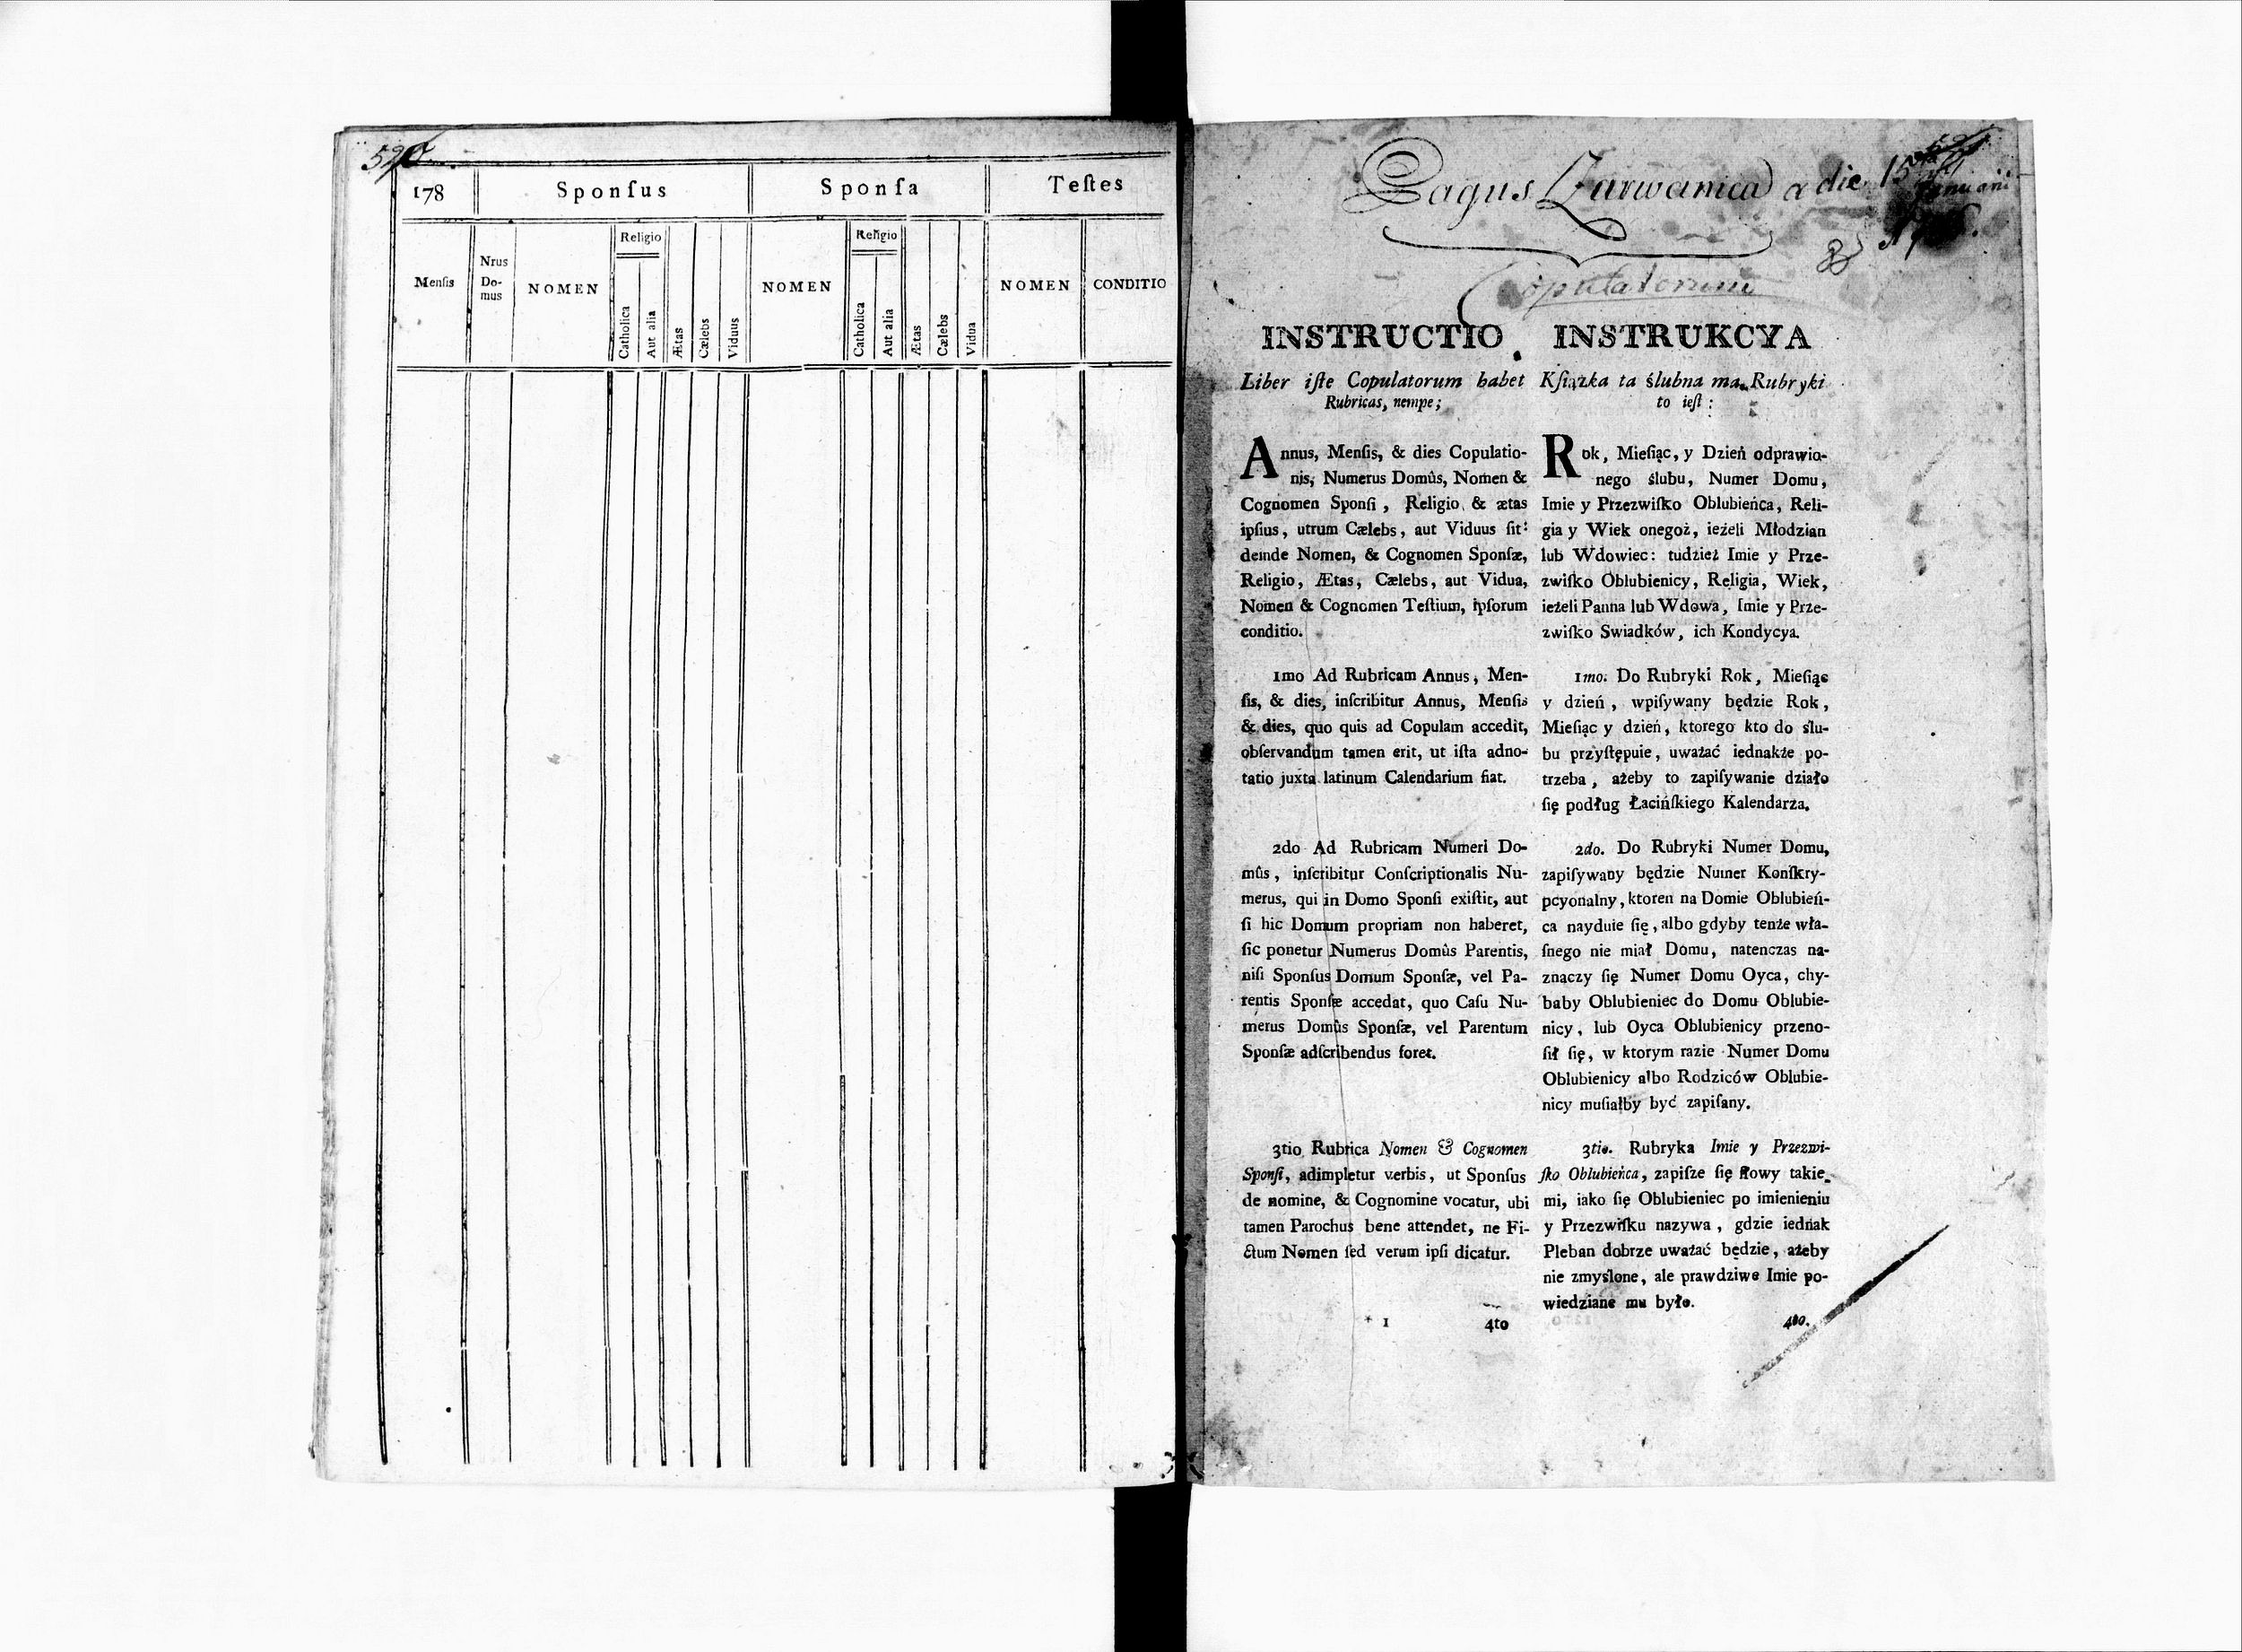 178
Sponſus
Sponſa
Teſtes
Menſis
Nrus Do-mus
NOMEN
Religio
Catholica
Aut alia
Ætas
Cælebs
Viduus
NOMEN
Religio
Catholica
Aut alia
Ætas
Cælebs
Vidua
NOMEN
CONDITIO
Pagus Zarwanica a die 15 Januarii
Copulatorum
INSTRUCTIO
Liber iſte Copulatorum habet
Rubricas, nempe;
Annus, Menſis, & dies Copulatio-
nis, Numerus Domûs, Nomen &
Cognomen Sponſi, Religio & ætas
ipſius, utrum Cælebs, aut Viduus ſit:
deinde Nomen, & Cognomen Sponſæ,
Religio, Ætas, Cælebs, aut Vidua,
Nomen & Cognomen Teſtium, ipſorum
conditio.
1mo Ad Rubricam Annus, Men-
ſis, & dies, inſcribitur Annus, Menſis
& dies, quo quis ad Copulam accedit,
obſervandum tamen erit, ut iſta adno-
tatio juxta latinum Calendarium fiat.
2do Ad Rubricam Numeri Do-
mûs, inſcribitur Conſcriptionalis Nu-
merus, qui in Domo Sponſi exiſtit, aut
ſi hic Domum propriam non haberet,
ſic ponetur Numerus Domûs Parentis,
niſi Sponſus Domum Sponſæ, vel Pa-
rentis Sponſæ accedat, quo Caſu Nu-
merus Domûs Sponſæ, vel Parentum
Sponſæ adſcribendus foret.
3tio Rubrica Nomen & Cognomen
Sponſi, adimpletur verbis, ut Sponſus
de nomine, & Cognomine vocatur, ubi
tamen Parochus bene attendet, ne Fi-
ctum Nomen ſed verum ipſi dicatur.
* 1
4to
INSTRUKCYA
Kſiązka ta ślubna ma Rubryki
to ieſt:
Rok, Mieſiąc, y Dzień odprawio-
nego ślubu, Numer Domu,
Imie y Przezwiſko Oblubieńca, Reli-
gia y Wiek onegoż, ieżeli Młodzian
lub Wdowiec: tudzież Imie y Prze-
zwiſko Oblubienicy, Religia, Wiek,
ieżeli Panna lub Wdowa, Imie y Prze-
zwiſko Swiadków, ich Kondycya.
1mo. Do Rubryki Rok, Mieſiąc
y dzień, wpiſywany będzie Rok,
Mieſiąc y dzień, ktorego kto do ślu-
bu przyſtępuie, uważać iednakże po-
trzeba, ażeby to zapiſywanie działo
ſię podług Łacińſkiego Kalendarza.
2do. Do Rubryki Numer Domu,
zapiſywany będzie Numer Konſkry-
pcyonalny, ktoren na Domie Oblubień-
ca nayduie ſię, albo gdyby tenże wła-
ſnego nie miał Domu, natenczas na-
znaczy ſię Numer Domu Oyca, chy-
baby Oblubieniec do Domu Oblubie-
nicy, lub Oyca Oblubienicy przeno-
ſił ſię, w ktorym razie Numer Domu
Oblubienicy albo Rodziców Oblubie-
nicy muſiałby być zapiſany.
3tio. Rubryka Imie y Przezwi-
ſko Oblubieńca, zapiſze ſię ſłowy takie-
mi, iako ſię Oblubieniec po imienieniu
y Przezwiſku nazywa, gdzie iednak
Pleban dobrze uważać będzie, ażeby
nie zmyślone, ale prawdziwe Imie po-
wiedziane mu było.
4to.